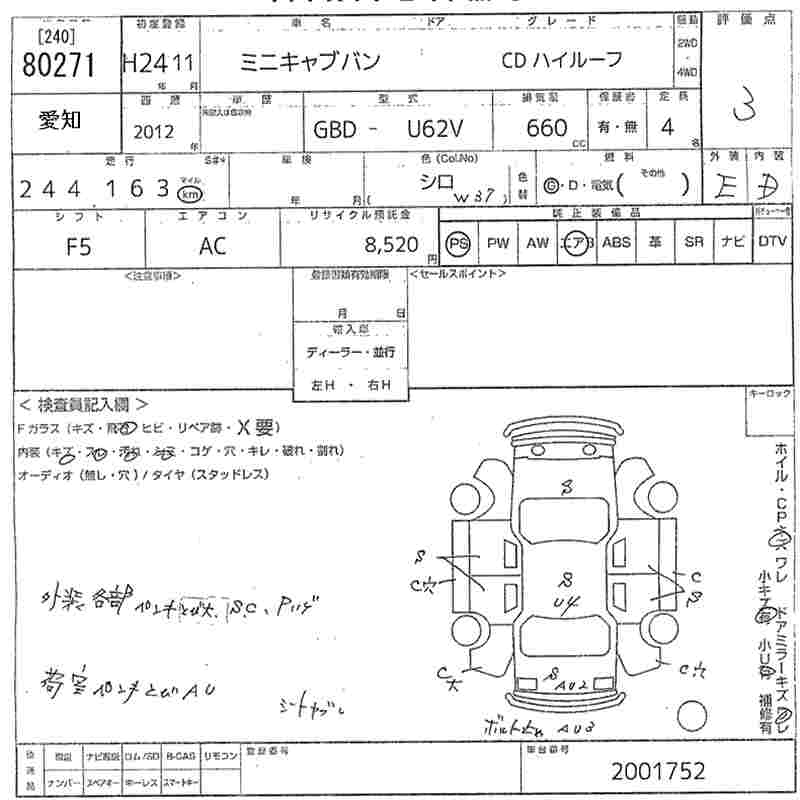 [240]
80271
初度登録
H24 11
年 月
車名 ドア グレード
ミニキャブバン CD ハイルーフ
駆動
2WD
・
4WD
評価点
3
愛知
2012
年
車歴
型式
GBD - U62V
排気量
660
CC
保証書
有・無
定員
4
名
走行
244,163
マイル
km
車検
年 月
色 (Col.No)
シロ
( W37 )
色替
燃料
G・D・電気( その他 )
外装
E
内装
D
シフト
F5
エアコン
AC
リサイクル預託金
8,520
円
純正装備品
PS PW AW エアB ABS 革 SR ナビ DTV
<注意事項>
登録書類有効期限
月 日
輸入車
ディーラー・並行
左H ・ 右H
<セールスポイント>
< 検査員記入欄 >
Fガラス (キズ・飛石・ヒビ・リペア跡・X要)
内装 (キズ・スレ・汚れ・シミ・コゲ・穴・キレ・破れ・割れ)
オーディオ (無し・穴) / タイヤ (スタッドレス)
キーロック
ホイル・CPキズワレ
ドアミラーキズワレ
小キズ有 小U有 補修有
外装 各部 ペンキとび大、S.C、Pハゲ
荷室 ペンキとび AU
シートヤブレ
S
S
U4
S
AU2
S
C穴
C
S
C大
C穴
AU3
後送品
ナビ取説 ロム/SD B-CAS リモコン
ナンバー スペアキー キーレス スマートキー
登録番号
車台番号
2001752